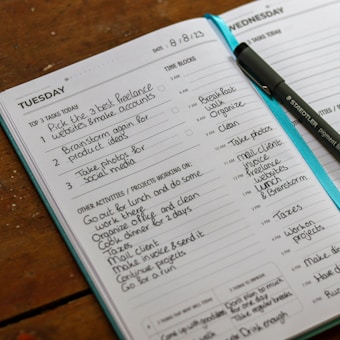 WEDNESDAY
TASKS TODAY
DATE 8/8/23
TUESDAY
TOP 3 TASKS TODAY
1 Pick the 3 best freelance
websites & make accounts
2 Brainstorm again for
product ideas
3 Take photos for
social media
OTHER ACTIVITIES / PROJECTS WORKING ON:
Go out for lunch and do some
work there
Organize office and clean
Cook dinner for 2 days
Taxes
Mail client
Make invoice & send it
Continue projects
Go for a run
TIME BLOCKS
Breakfast
walk
Organize
Clean
Take photos
Mail client
invoice
freelance
websites
lunch
& Brainstorm
Taxes
Work on
projects
Make
Have
Run
Don't plan to much
for one day
Take regular breaks
Drink enough
Come up with good
STAEDTLER
pigment